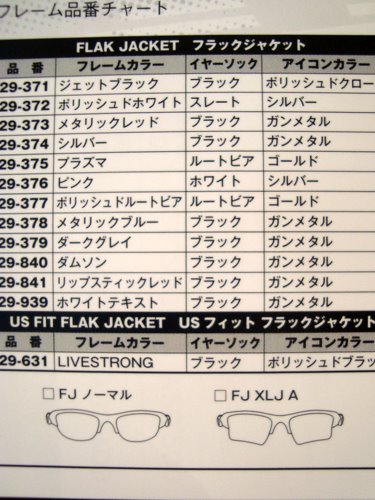 フレーム品番チャート
FLAK JACKET フラックジャケット
品 番 フレームカラー イヤーソック アイコンカラー
29-371 ジェットブラック ブラック ポリッシュドクロー
29-372 ポリッシュドホワイト スレート シルバー
29-373 メタリックレッド ブラック ガンメタル
29-374 シルバー ブラック ガンメタル
29-375 プラズマ ルートビア ゴールド
29-376 ピンク ホワイト シルバー
29-377 ポリッシュドルートビア ルートビア ゴールド
29-378 メタリックブルー ブラック ガンメタル
29-379 ダークグレイ ブラック ガンメタル
29-840 ダムソン ブラック ガンメタル
29-841 リップスティックレッド ブラック ガンメタル
29-939 ホワイトテキスト ブラック ガンメタル
US FIT FLAK JACKET US フィット フラックジャケット
品 番 フレームカラー イヤーソック アイコンカラー
29-631 LIVESTRONG ブラック ポリッシュドブラッ
□ FJ ノーマル □ FJ XLJ A